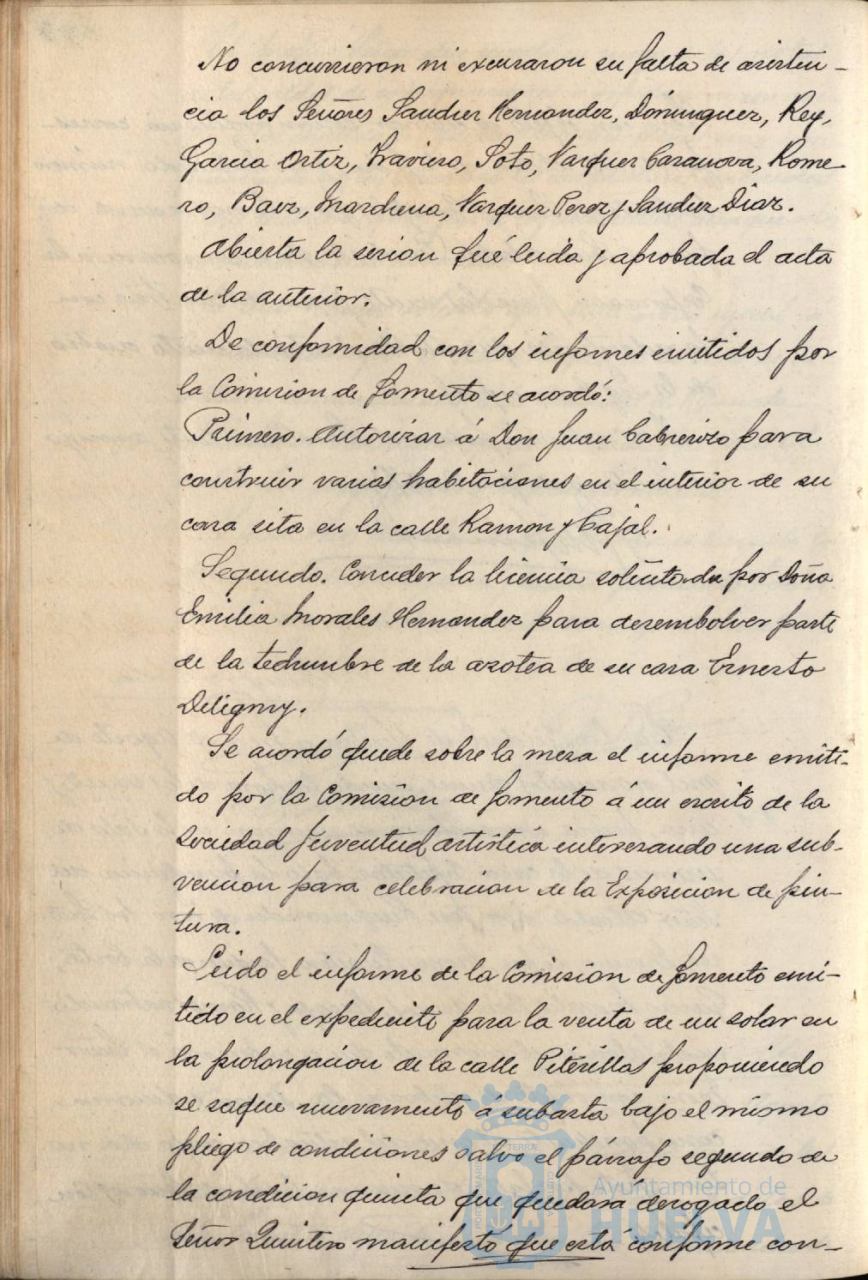 No concurrieron ni excusaron su falta de asisten-
cia los Señores Sanchez Hernandez, Dóminguez, Rey,
Garcia Ortiz, Traviero, Soto, Vazquez Casanova, Rome-
ro, Baez, Marchena, Vazquez Perez y Sanchez Diaz.
Abierta la sesion fué leida y aprobada el acta
de la anterior.
De conformidad con los informes emitidos por
la Comision de Fomento se acordó:
Primero. Autorizar á Don Juan Cabrerizo para
construir varias habitaciones en el interior de su
casa sita en la calle Ramon y Cajal.
Segundo. Conceder la licencia solicitada por Doña
Emilia Morales Hernandez para desembolver parte
de la techumbre de la azotea de su casa Ernesto
Deligny.
Se acordó quede sobre la mesa el informe emiti-
do por la Comision de Fomento á un escrito de la
Sociedad Juventud artística interesando una sub-
vencion para celebracion de la Exposicion de pin-
tura.
Leido el informe de la Comision de Fomento emi-
tido en el expediente para la venta de un solar en
la prolongacion de la calle Piterillas proponiendo
se saque nuevamente á subasta bajo el mismo
pliego de condiciones salvo el párrafo segundo de
la condicion quinta que quedará derogado el
Señor Quintero manifestó que esta conforme con-
Ayuntamiento de
HUELVA